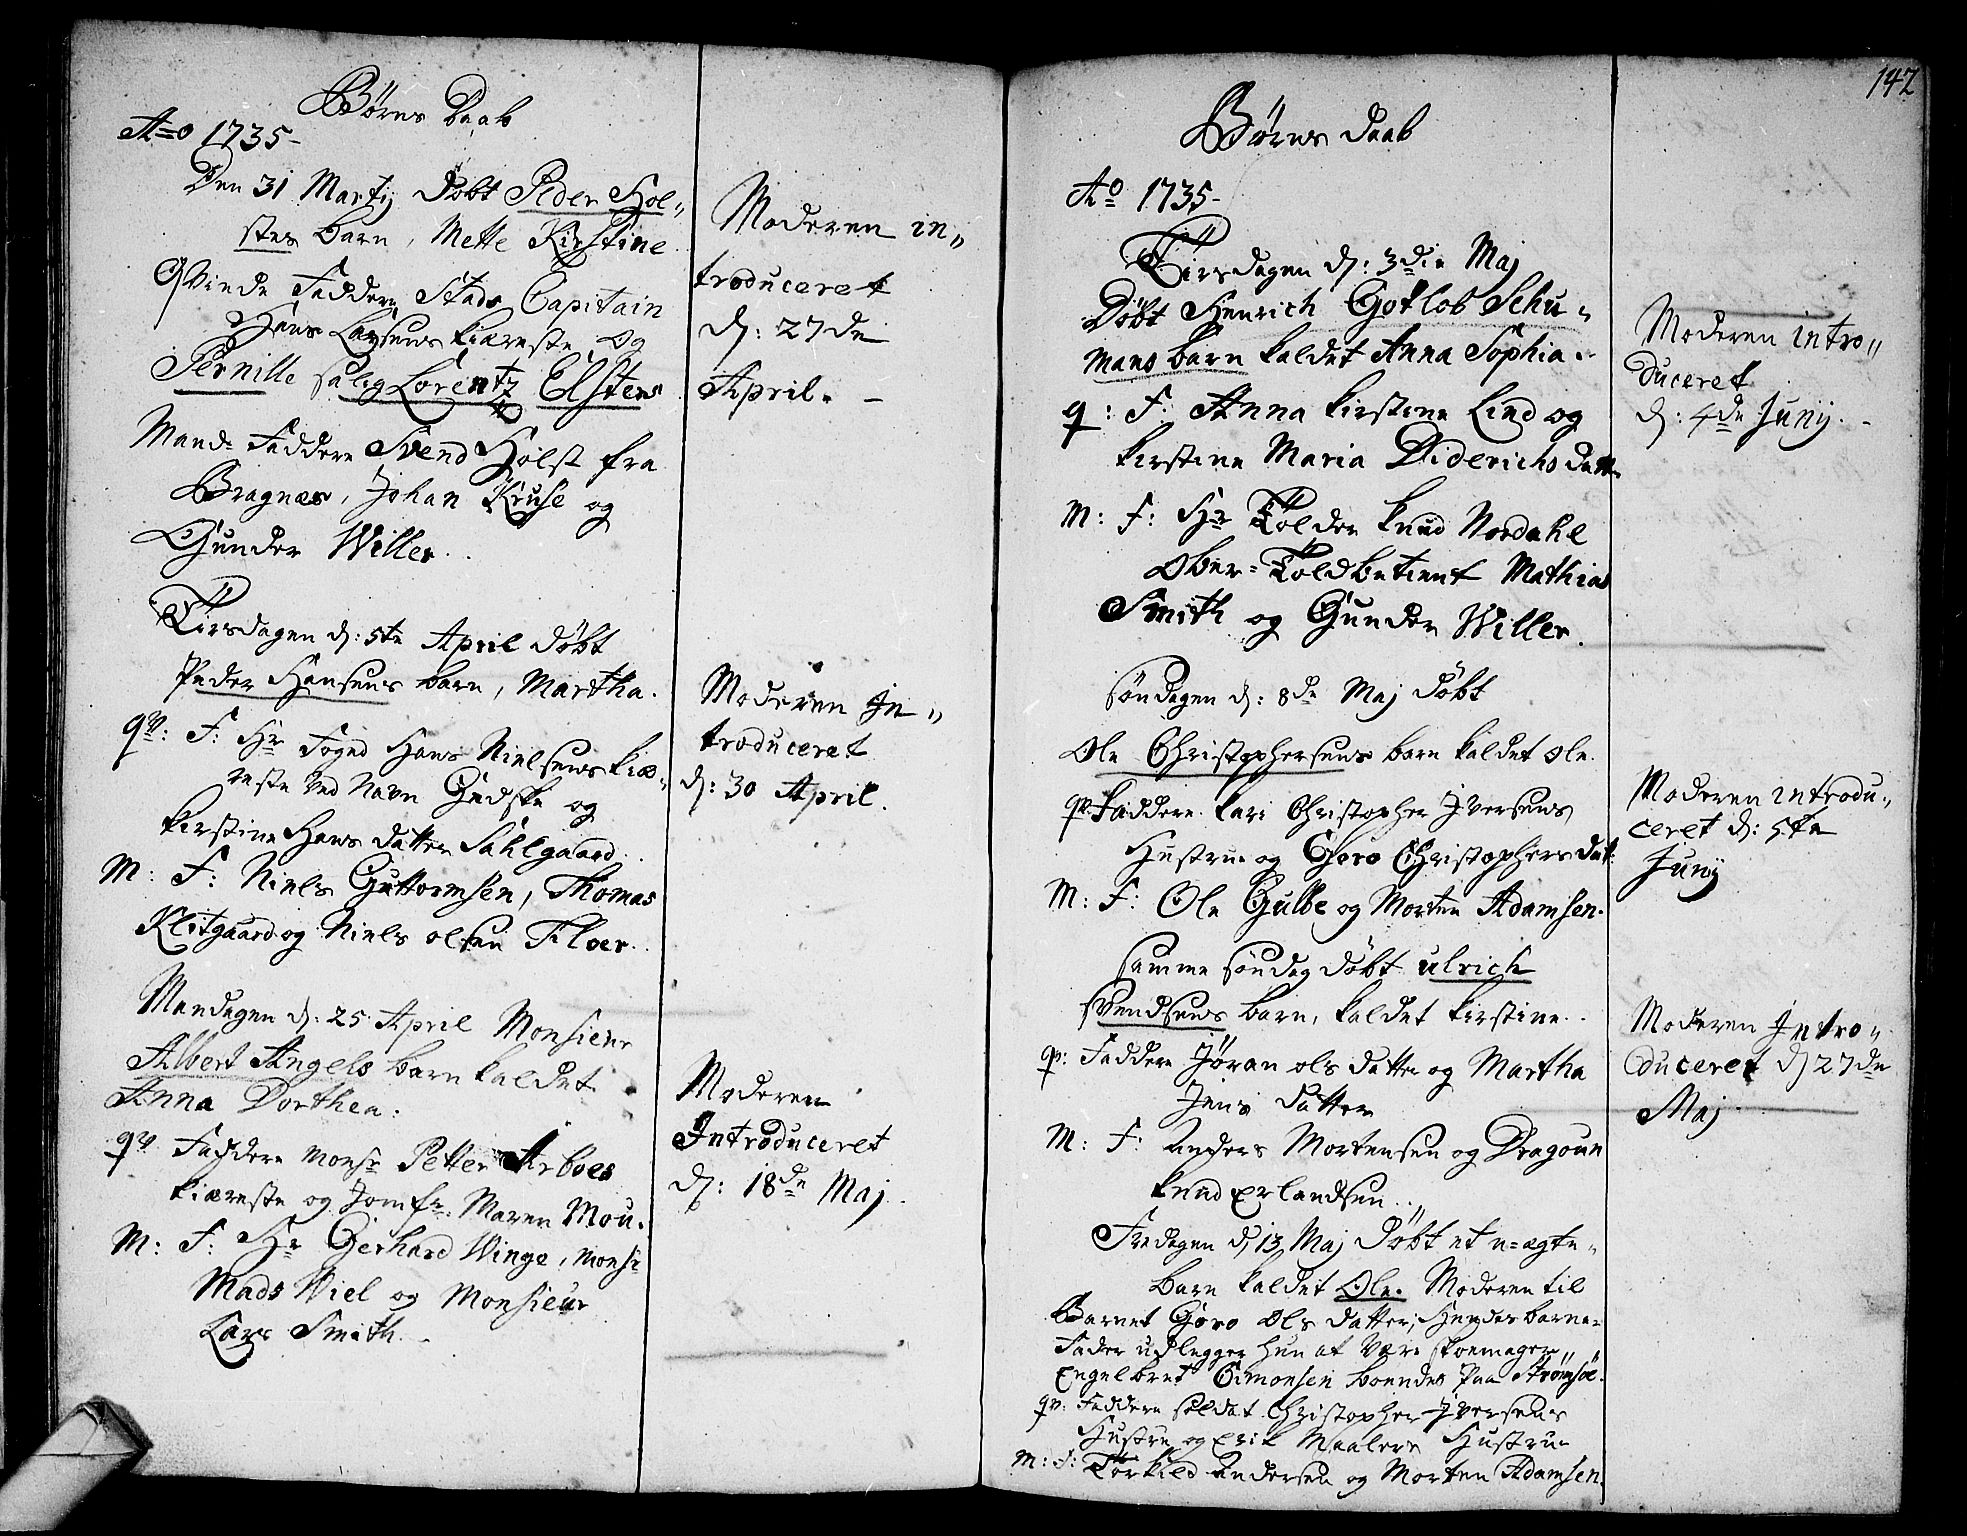 Børns Daab
A=o 1735-
Den 31 Martij Døbt Peder Hol„
stes barn, Mette Kirstine
Qvinde Faddere Stads Capitain
Hans Larsens kiæreste og
Pernille salig Lorentz Elstens
Mand= Faddere Svend Holst fra
Bragnæs, Johan Kruse og
Gunder Willer.
Moderen in„
troduceret
d: 27de
April. -
Tirsdagen d: 5te April døbt
Peder Hansens barn, Martha.
qv: F: Hr Foged Hans Nielsens kiæ„
reste ved Navn Giedske og
Kirstine Hans datter Sahlgaard.
M: F: Niels Guttormsen, Thomas
Klitgaard og Niels olsen Floer.
Moderen In„
troduceret
d: 30 April.
Mandagen d: 25 April Monsieur
Albert Angels barn kaldet
Anna Dorthea.
qv Faddere Monsr Petter Arboes
kiæreste og Jomfr. Maren Mou.
M: F: Hr Gerhard Winge, Monsr
Mads Wiel og Monsieur
Lars Smith. -
Moderen
Introduceret
d: 18de Maj.
142
Børns daab
Ao 1735-
Tirsdagen d: 3die Maj
Døbt Henrich Gotlob Schu„
mans barn kaldet Anna Sophia.
q: F: Anna kirstine Lind og
kirstine Maria Diderichs datt.
M: F: Hr Tolder Knud Nordahl
Ober=Toldbetient Mathias
Smith og Gunder Willer.
Moderen intro„
duceret
d: 4de Junij. -
Søndagen d: 8de Maj døbt
Ole Christophersens barn kaldet Ole.
qv Faddere kari Christopher Iversens
Hustrue og Goro Christophersdat.
M: F: Ole Gulbe og Morten Adamsen.
Moderen introdu„
ceret d: 5te
Junij
Samme Søndag døbt Ulrich
Svendsens barn, kaldet kirstine.
qv: Faddere Jøran ols datter og Martha
Jens datter
M: F: Anders Mortensen og Dragoun
knud Erlandsen.
Moderen Intro„
duceret d 27de
Maj
Fredagen d, 13 Maj Døbt et u=ægte„
barn kaldet Ole. Moderen til
Barnet Goro Ols datter; Hendes barne=
Fader udlegger hun at være skoemager
Engelbret Simonsen boendes paa Strømsøe.
qv: Faddere soldat Christopher Iversens
Hustru og Erik Maalers Hustrue
M: F: Torkild Andersen og Morten Adamsen.